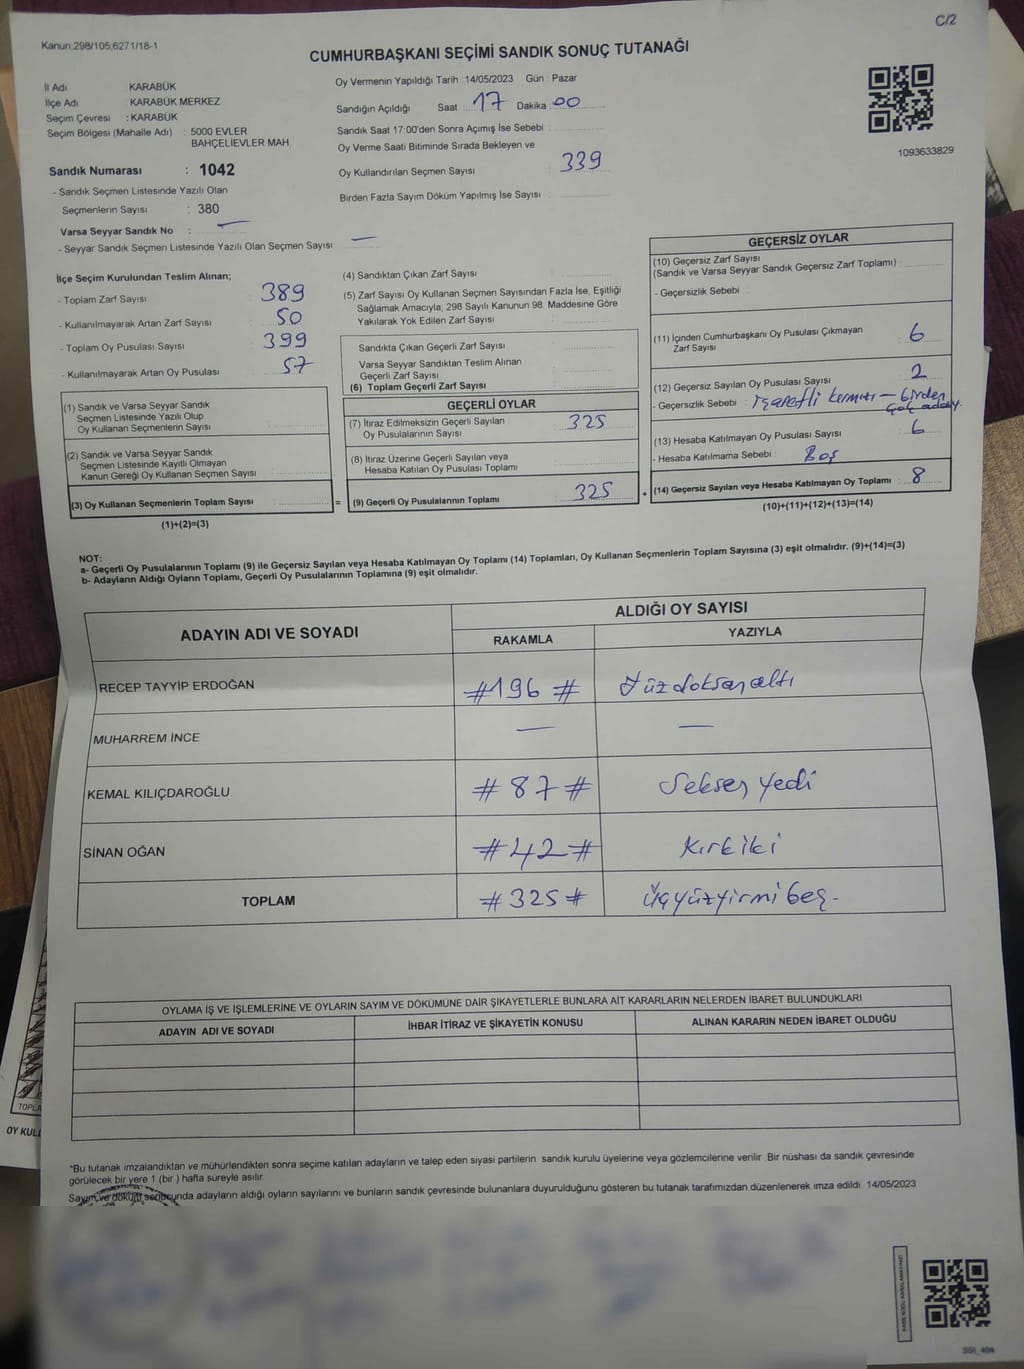 C/2
Kanun;298/105,6271/18-1
CUMHURBAŞKANI SEÇİMİ SANDIK SONUÇ TUTANAĞI
İl Adı KARABÜK
İlçe Adı KARABÜK MERKEZ
Seçim Çevresi : KARABÜK
Seçim Bölgesi (Mahalle Adı) : 5000 EVLER
BAHÇELİEVLER MAH.
Sandık Numarası : 1042
- Sandık Seçmen Listesinde Yazılı Olan
Seçmenlerin Sayısı : 380
Varsa Seyyar Sandık No : —
- Seyyar Sandık Seçmen Listesinde Yazılı Olan Seçmen Sayısı: —
Oy Vermenin Yapıldığı Tarih :14/05/2023 Gün : Pazar
Sandığın Açıldığı Saat : 17 Dakika : 00
Sandık Saat 17:00'den Sonra Açımış İse Sebebi :
Oy Verme Saati Bitiminde Sırada Bekleyen ve
Oy Kullandırılan Seçmen Sayısı : 339
Birden Fazla Sayım Döküm Yapılmış İse Sayısı :
1093633829
İlçe Seçim Kurulundan Teslim Alınan;
- Toplam Zarf Sayısı : 389
- Kullanılmayarak Artan Zarf Sayısı : 50
- Toplam Oy Pusulası Sayısı : 399
- Kullanılmayarak Artan Oy Pusulası : 57
(1) Sandık ve Varsa Seyyar Sandık
Seçmen Listesinde Yazılı Olup
Oy Kullanan Seçmenlerin Sayısı :
(2) Sandık ve Varsa Seyyar Sandık
Seçmen Listesinde Kayıtlı Olmayan
Kanun Gereği Oy Kullanan Seçmen Sayısı :
(3) Oy Kullanan Seçmenlerin Toplam Sayısı :
(1)+(2)=(3)
(4) Sandıktan Çıkan Zarf Sayısı :
(5) Zarf Sayısı Oy Kullanan Seçmen Sayısından Fazla İse, Eşitliği
Sağlamak Amacıyla; 298 Sayılı Kanunun 98. Maddesine Göre
Yakılarak Yok Edilen Zarf Sayısı :
Sandıkta Çıkan Geçerli Zarf Sayısı :
Varsa Seyyar Sandıktan Teslim Alınan
Geçerli Zarf Sayısı :
(6) Toplam Geçerli Zarf Sayısı :
GEÇERLİ OYLAR
(7) İtiraz Edilmeksizin Geçerli Sayılan
Oy Pusulalarının Sayısı : 325
(8) İtiraz Üzerine Geçerli Sayılan veya
Hesaba Katılan Oy Pusulası Toplamı :
= (9) Geçerli Oy Pusulalarının Toplamı : 325 +
GEÇERSİZ OYLAR
(10) Geçersiz Zarf Sayısı
(Sandık ve Varsa Seyyar Sandık Geçersiz Zarf Toplamı) :
- Geçersizlik Sebebi :
(11) İçinden Cumhurbaşkanı Oy Pusulası Çıkmayan
Zarf Sayısı : 6
(12) Geçersiz Sayılan Oy Pusulası Sayısı : 2
- Geçersizlik Sebebi : işaretli kırmızı — birden
çok aday.
(13) Hesaba Katılmayan Oy Pusulası Sayısı : 6
- Hesaba Katılmama Sebebi : Boş
(14) Geçersiz Sayılan veya Hesaba Katılmayan Oy Toplamı : 8
(10)+(11)+(12)+(13)=(14)
NOT:
a- Geçerli Oy Pusulalarının Toplamı (9) ile Geçersiz Sayılan veya Hesaba Katılmayan Oy Toplamı (14) Toplamları, Oy Kullanan Seçmenlerin Toplam Sayısına (3) eşit olmalıdır. (9)+(14)=(3)
b- Adayların Aldığı Oyların Toplamı, Geçerli Oy Pusulalarının Toplamına (9) eşit olmalıdır.
ADAYIN ADI VE SOYADI
ALDIĞI OY SAYISI
RAKAMLA YAZIYLA
RECEP TAYYİP ERDOĞAN #196# Yüzdoksanaltı
MUHARREM İNCE — —
KEMAL KILIÇDAROĞLU #87# Seksen yedi
SİNAN OĞAN #42# Kırkiki
TOPLAM #325# Üçyüzyirmi beş-
OYLAMA İŞ VE İŞLEMLERİNE VE OYLARIN SAYIM VE DÖKÜMÜNE DAİR ŞİKAYETLERLE BUNLARA AİT KARARLARIN NELERDEN İBARET BULUNDUKLARI
ADAYIN ADI VE SOYADI İHBAR İTİRAZ VE ŞİKAYETİN KONUSU ALINAN KARARIN NEDEN İBARET OLDUĞU
TOPLA
OY KULL
*Bu tutanak imzalandıktan ve mühürlendikten sonra seçime katılan adayların ve talep eden siyasi partilerin sandık kurulu üyelerine veya gözlemcilerine verilir. Bir nüshası da sandık çevresinde
görülecek bir yere 1 (bir ) hafta süreyle asılır.
Sayım ve döküm sonucunda adayların aldığı oyların sayılarını ve bunların sandık çevresinde bulunanlara duyurulduğunu gösteren bu tutanak tarafımızdan düzenlenerek imza edildi. 14/05/2023